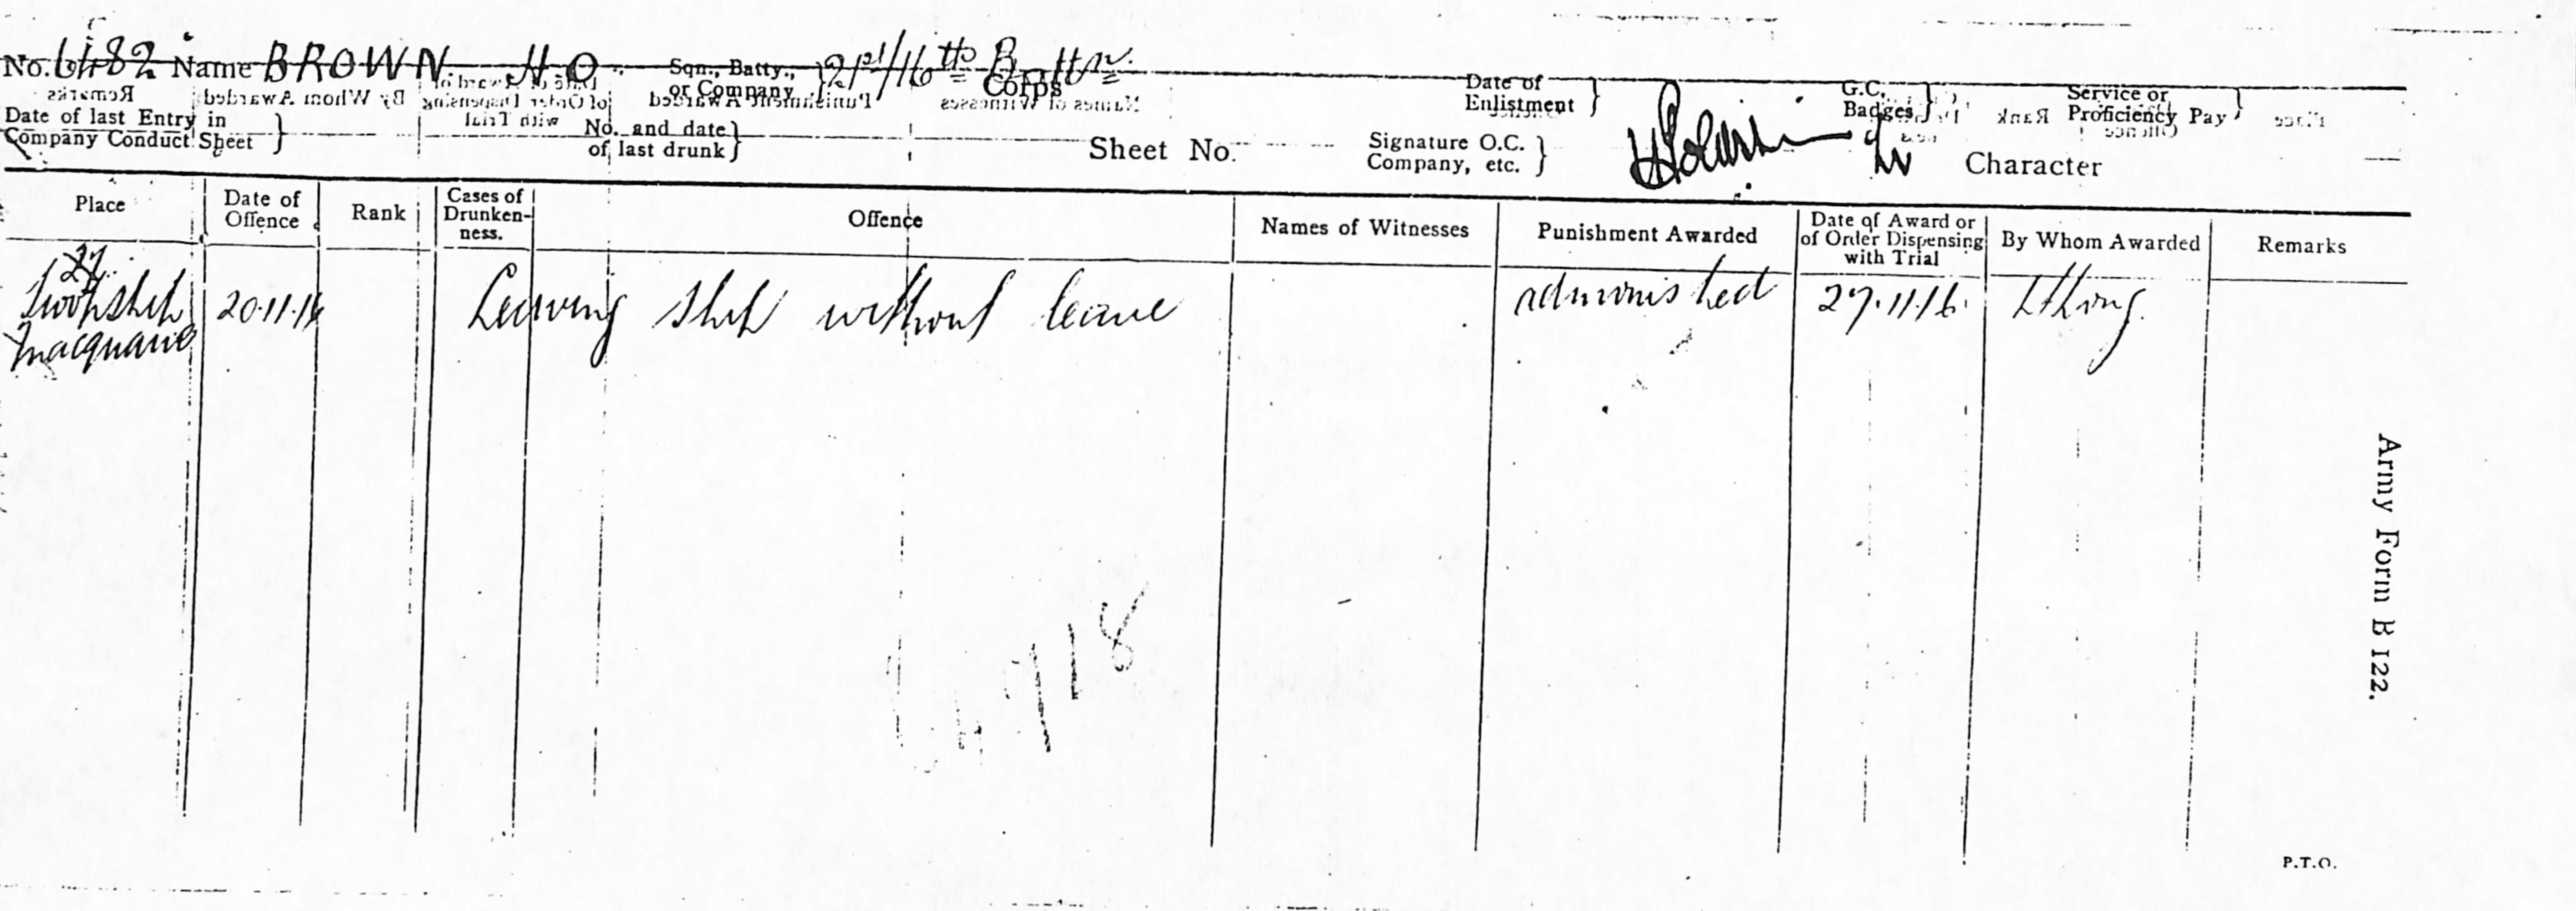 No. 6482 Name BROWN. H.O. Sqn., Batty., or Company } 21st/16th Battn. Corps
Date of Enlistment } G.C. Badges } Service or Proficiency Pay }
Date of last Entry in Company Conduct Sheet } No. and date of last drunk } Sheet No. Signature O.C. Company, etc. } Character
Place Date of Offence Rank Cases of Drunken-ness. Offence Names of Witnesses Punishment Awarded Date of Award or of Order Dispensing with Trial By Whom Awarded Remarks
Troopship Macquarie 20.11.16 Leaving ship without leave admonished 27.11.16.
Army Form B 122.
P.T.O.